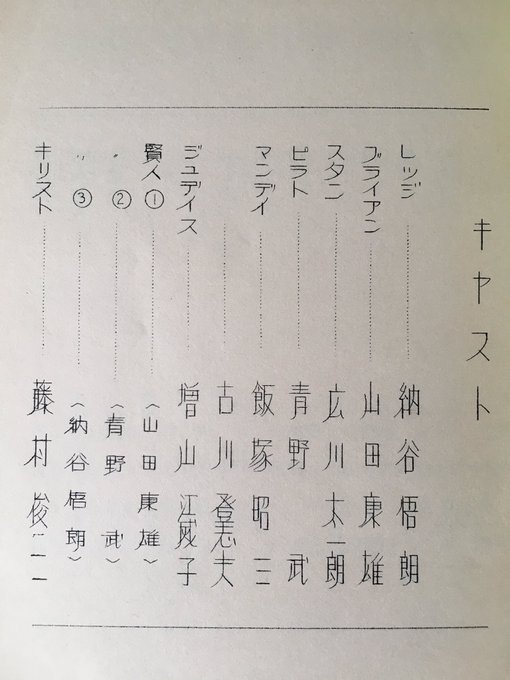 キャスト
レッジ……納谷悟朗
ブライアン……山田康雄
スタン……広川太一朗
ピラト……青野 武
マンデイ……飯塚昭三
……古川登志夫
ジュデイス……増山江威子
賢人①……（山田康雄）
〃 ②……（青野 武）
〃 ③……（納谷悟朗）
キリスト……藤村俊二